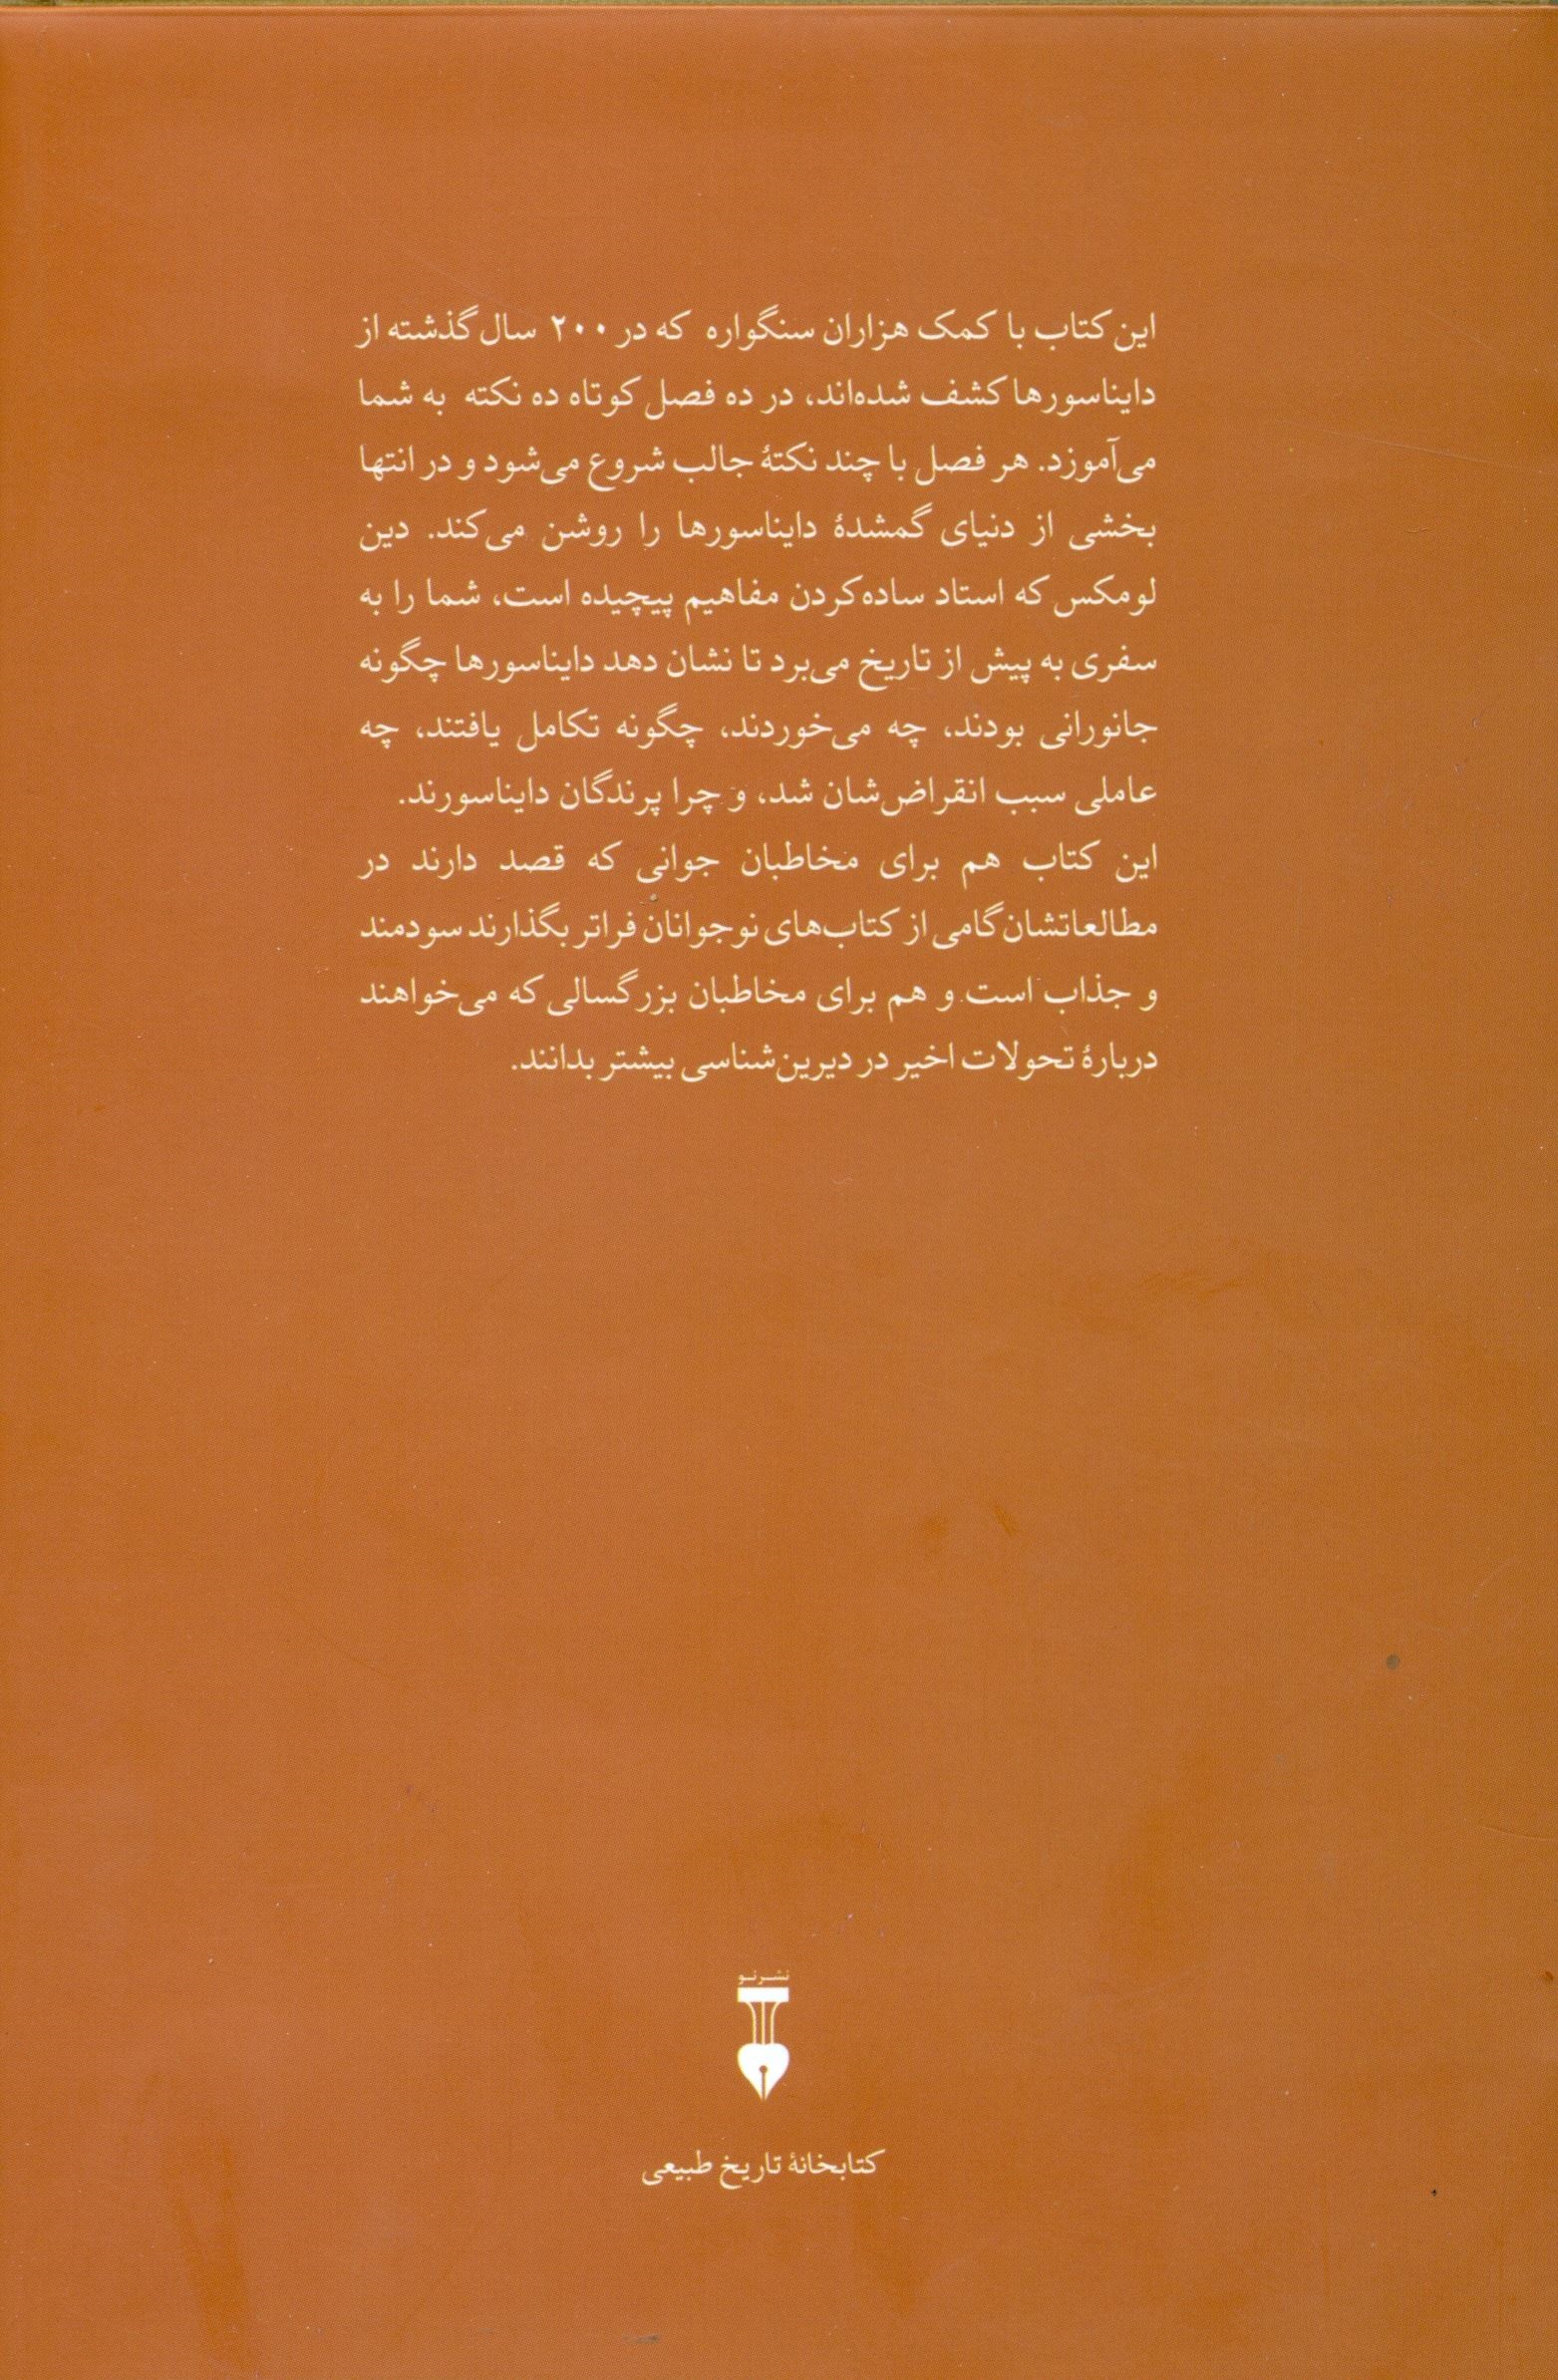 این کتاب با کمک هزاران سنگواره که در ۲۰۰ سال گذشته از
دایناسورها کشف شده‌اند، در ده فصل کوتاه ده نکته به شما
می‌آموزد. هر فصل با چند نکتهٔ جالب شروع می‌شود و در انتها
بخشی از دنیای گمشدهٔ دایناسورها را روشن می‌کند. دین
لومکس که استاد ساده‌کردن مفاهیم پیچیده است، شما را به
سفری به پیش از تاریخ می‌برد تا نشان دهد دایناسورها چگونه
جانورانی بودند، چه می‌خوردند، چگونه تکامل یافتند، چه
عاملی سبب انقراض‌شان شد، و چرا پرندگان دایناسورند.
این کتاب هم برای مخاطبان جوانی که قصد دارند در
مطالعاتشان گامی از کتاب‌های نوجوانان فراتر بگذارند سودمند
و جذاب است و هم برای مخاطبان بزرگسالی که می‌خواهند
دربارهٔ تحولات اخیر در دیرین‌شناسی بیشتر بدانند.
نشر نو
کتابخانهٔ تاریخ طبیعی